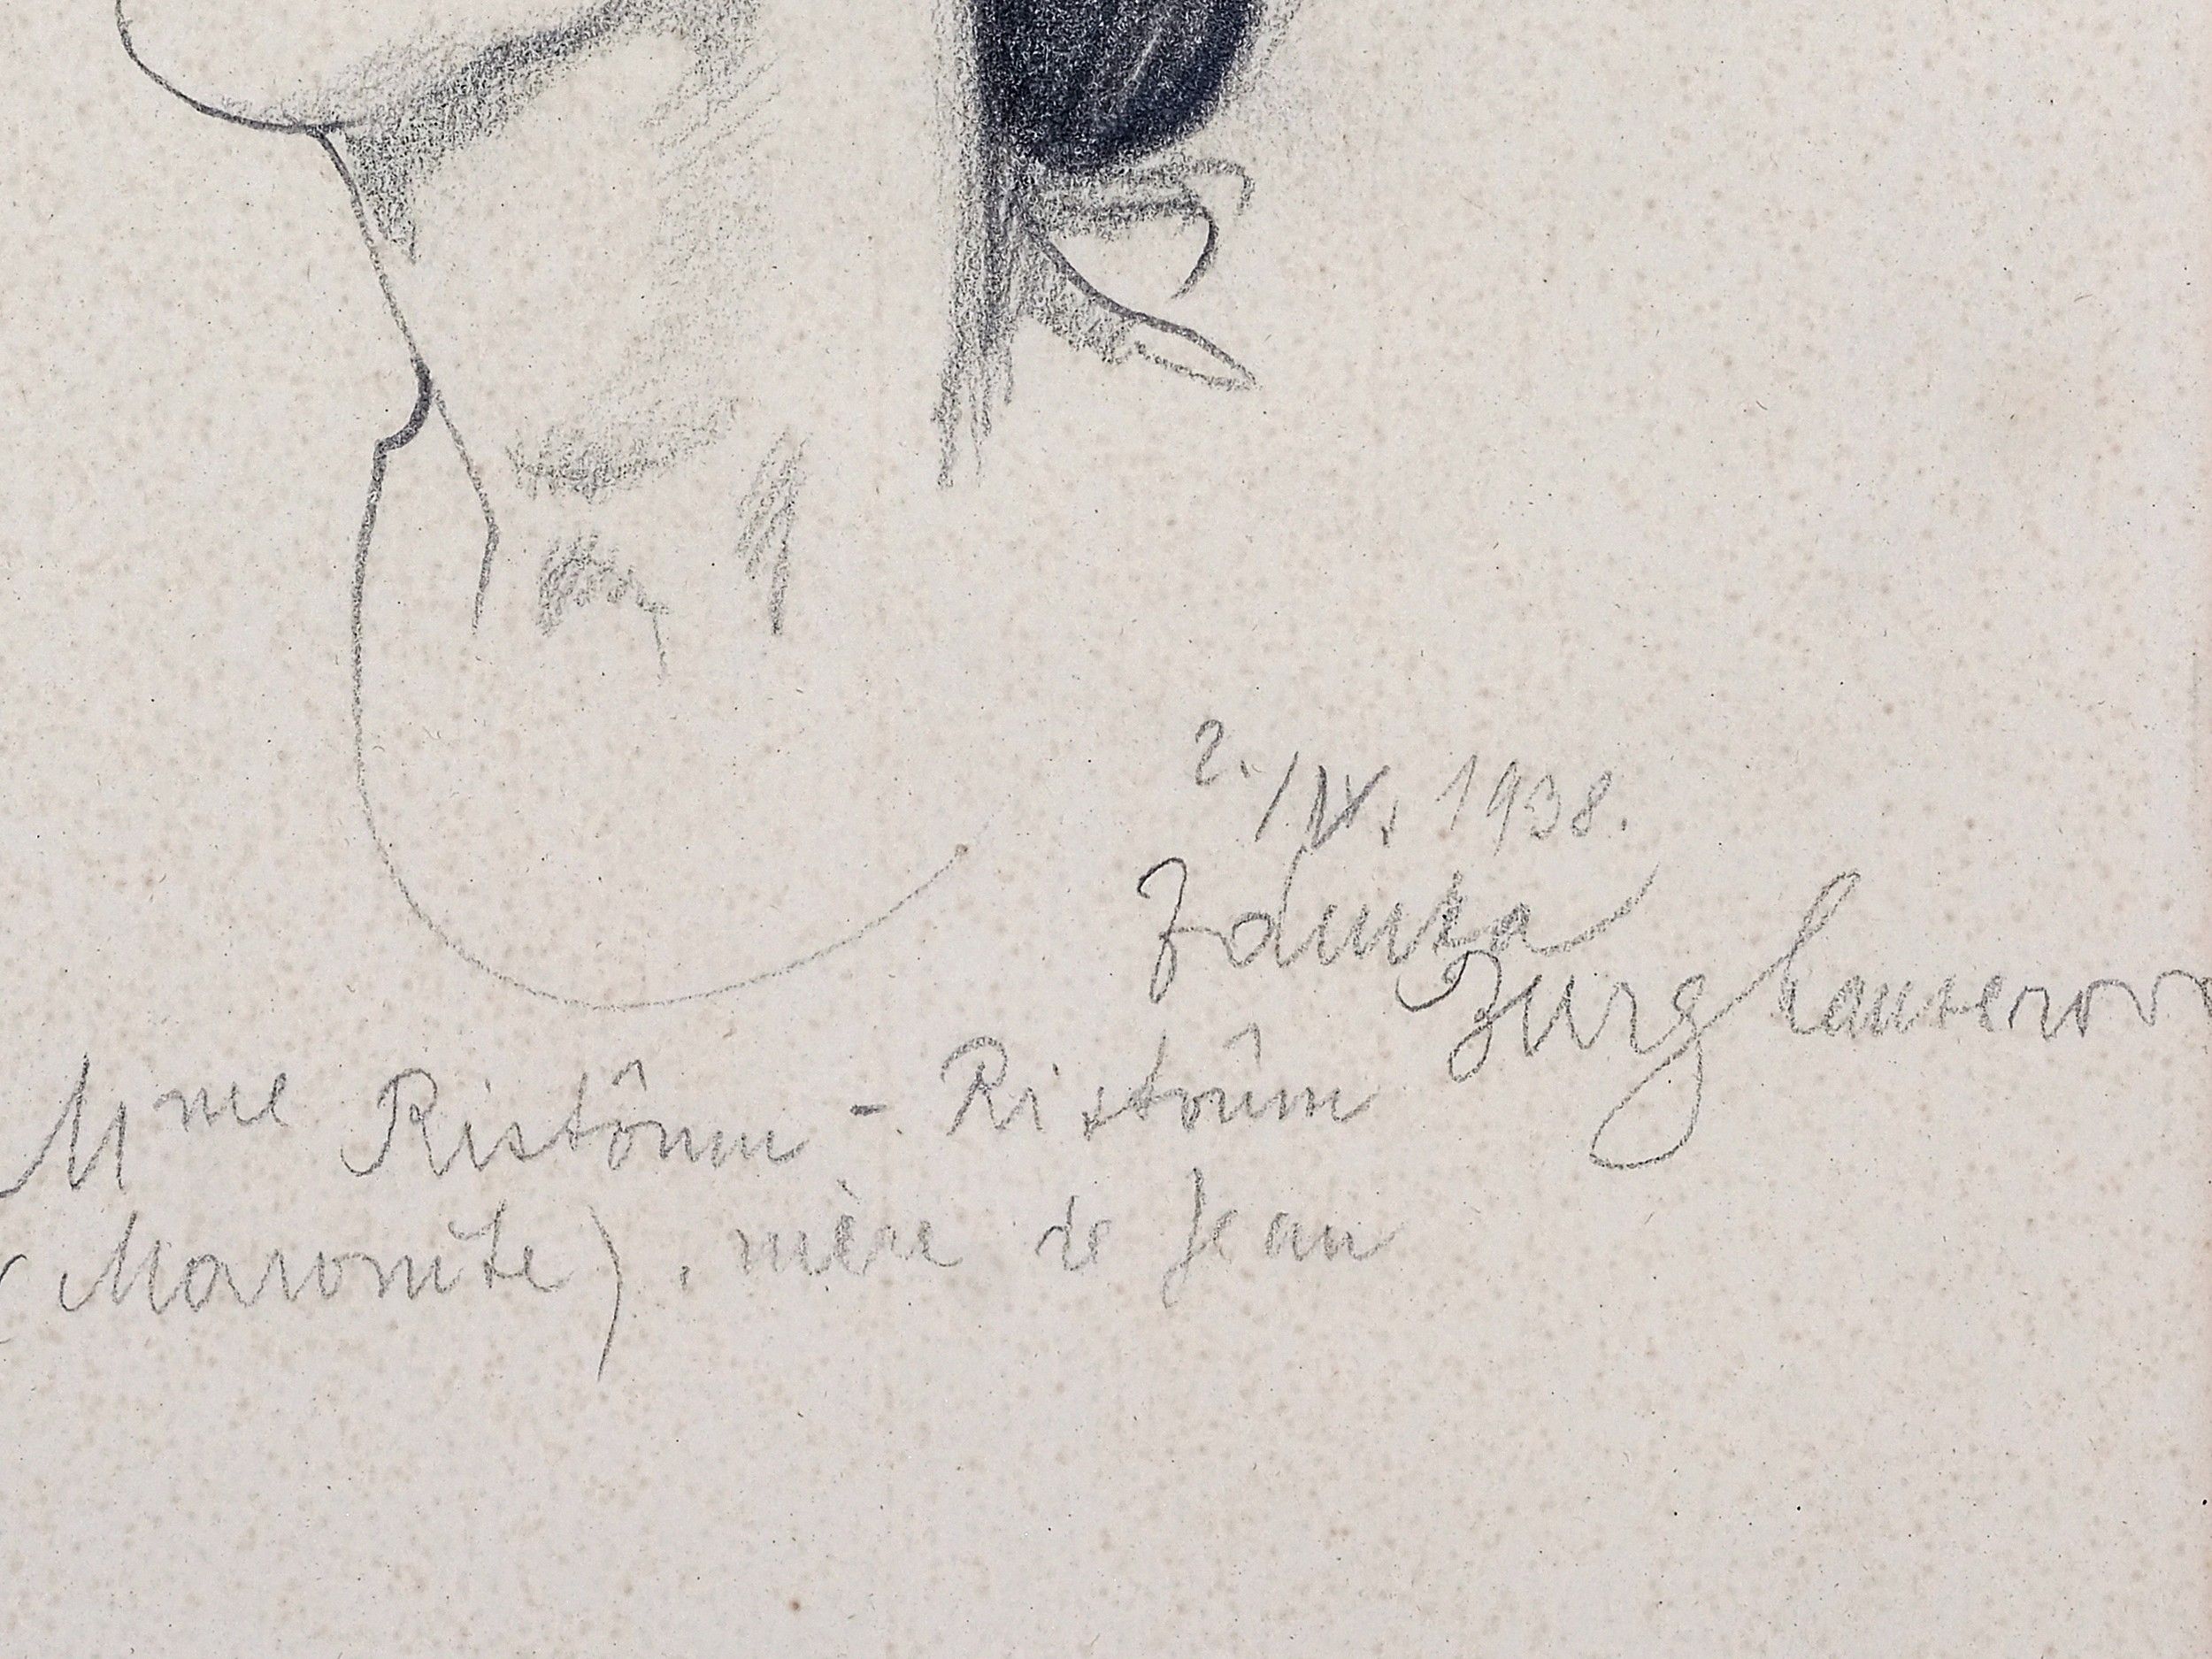 2./IX. 1938.
Zdenka
Burghauserov
Mme Ristôum - Ristoûm
(Maronite), mère de Jean